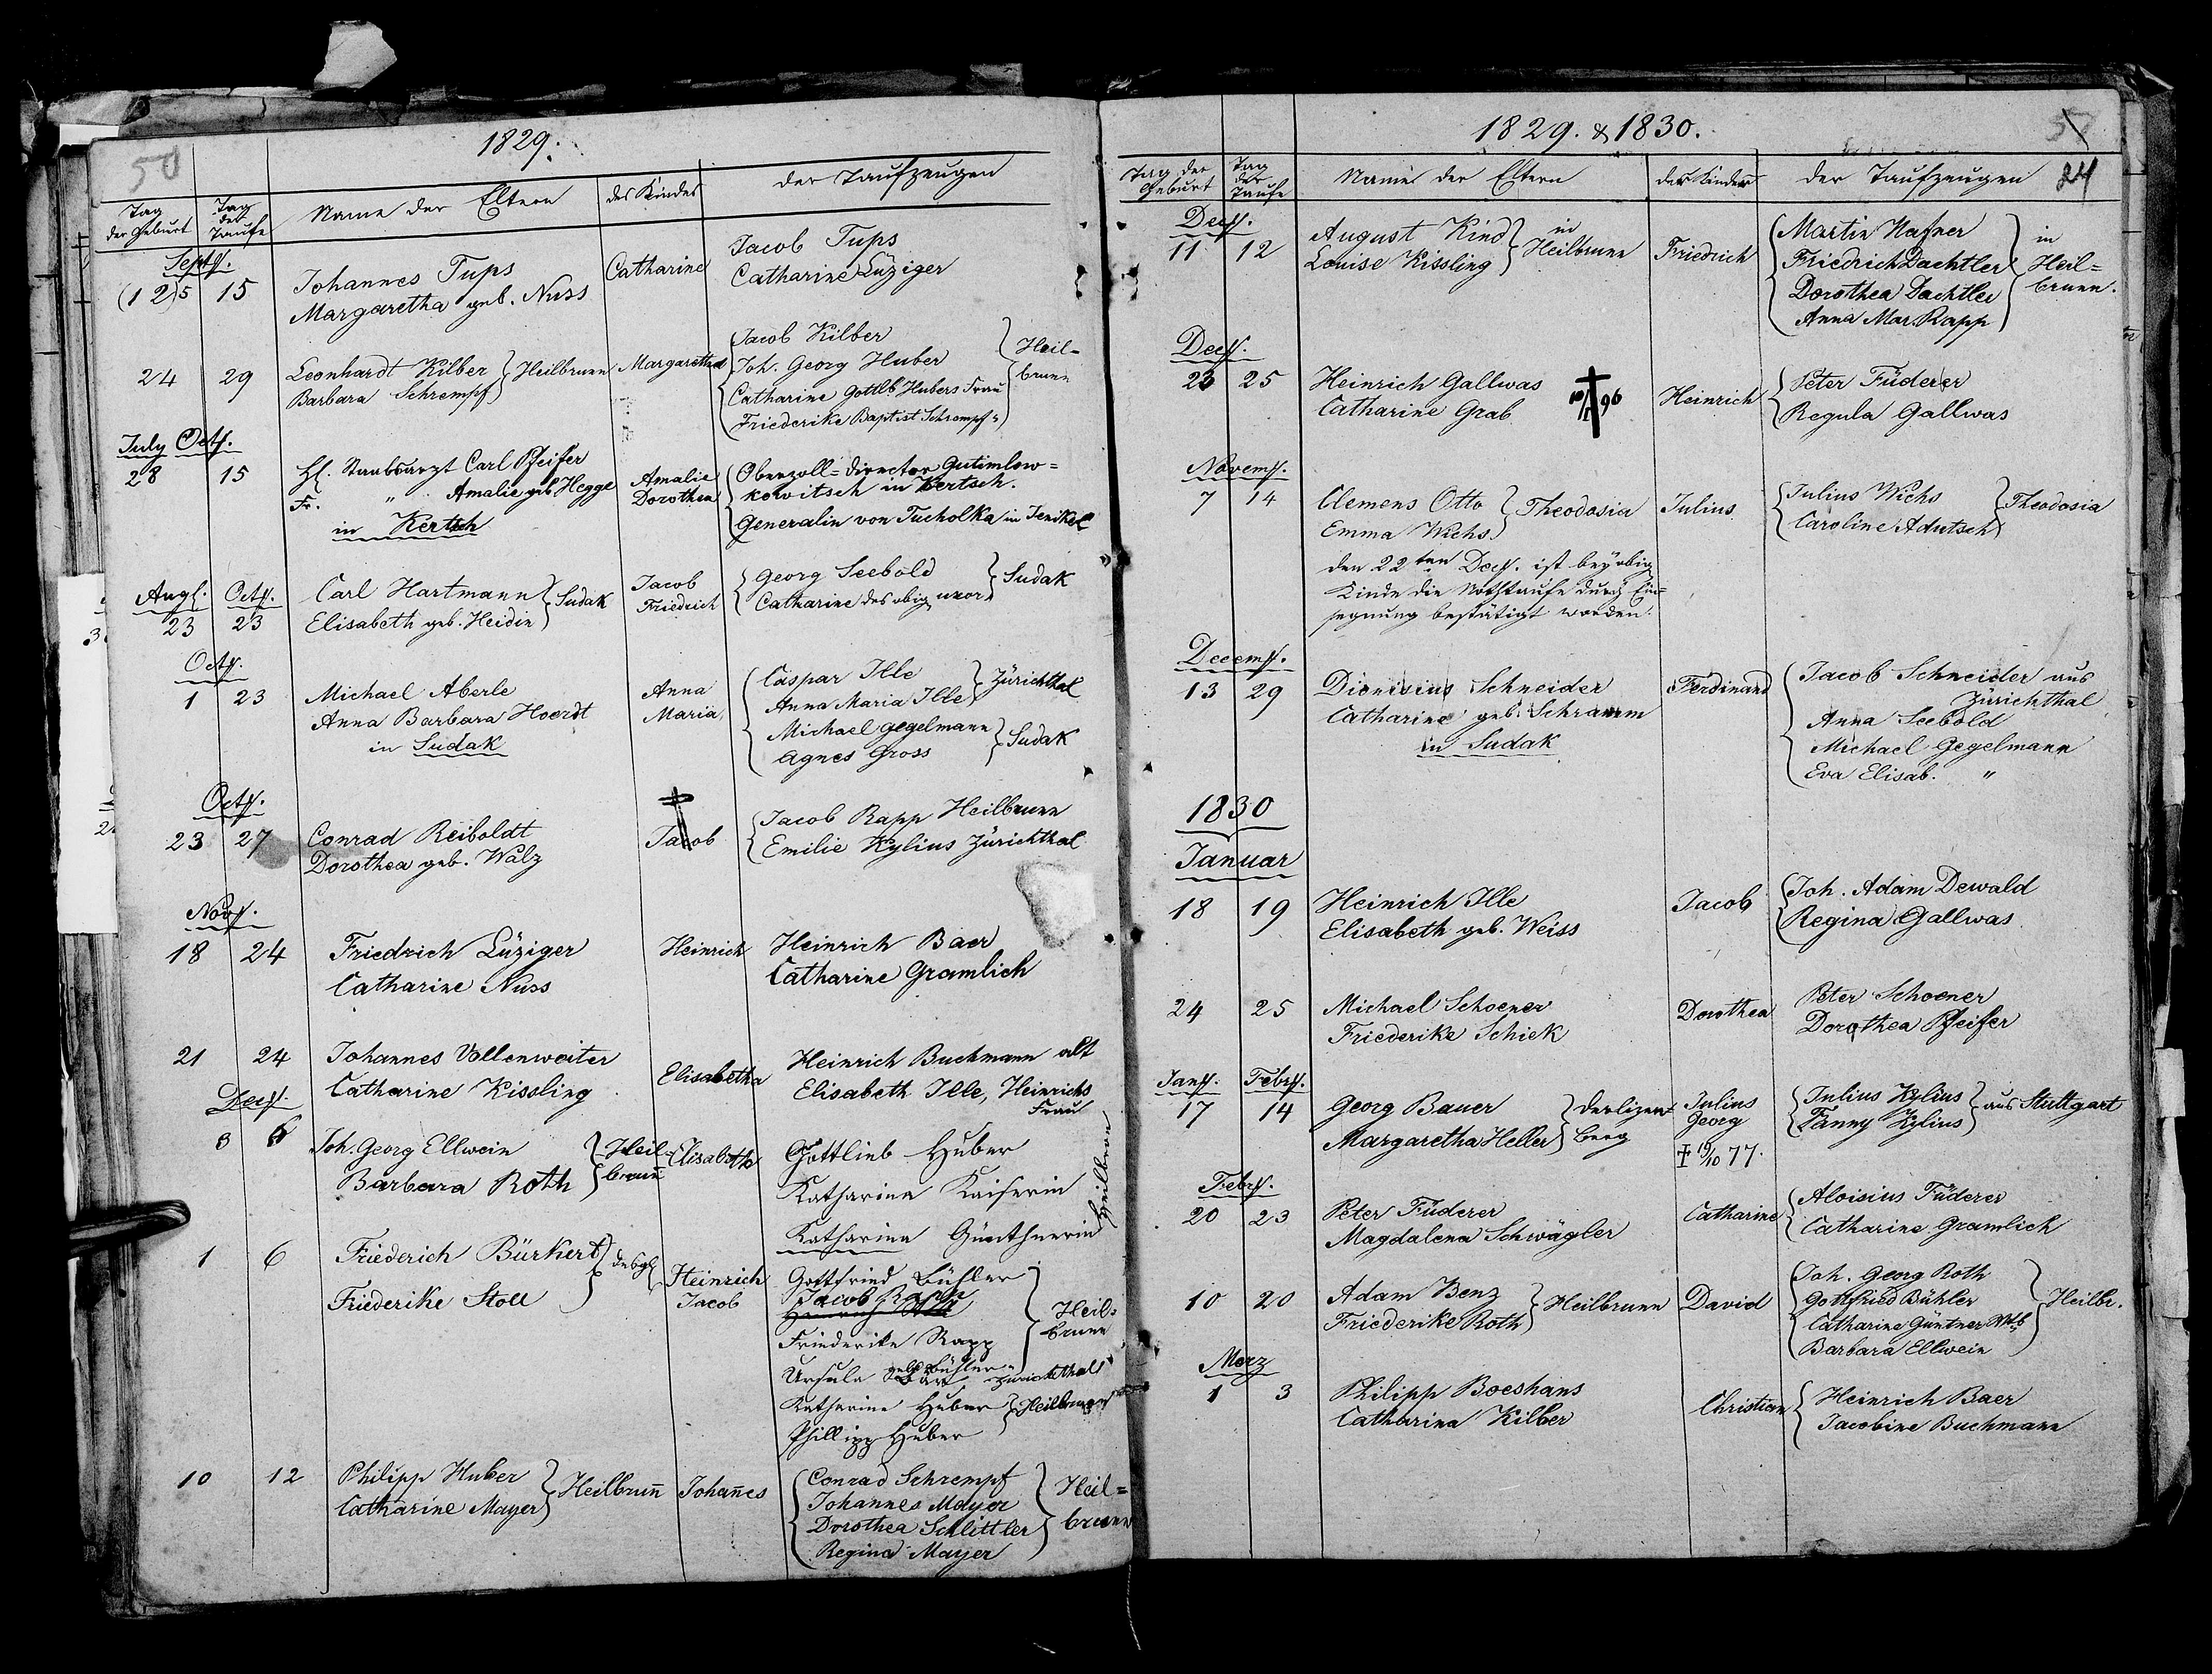 50
1829.
Tag der Geburt
Tag der Taufe
Name der Eltern
des Kindes
der Taufzeugen
Septb.
(12)5 15 Johannes Tups Catharine Jacob Tups
Margaretha geb. Nuss Catharine Lüziger
24 29 Leonhardt Kilber } Heilbrunn Margaretha Jacob Kilber
Barbara Schrempf Joh. Georg Huber } Heil=
Catharine Gottlb. Hubers Frau brunn
Friederike Baptist Schrempfs "
July Octb.
28 15 H. Staabsarzt Carl Pfeifer Amalie Oberzoll=director Gutimlow=
Fr. " Amalie geb. Hegge Dorothea kowitsch in Kertsch.
in Kertsch Generalin von Tucholka in Jenikel
Augt. Octb.
23 23 Carl Hartmann } Sudak Jacob Georg Seebold } Sudak
Elisabeth geb. Heidin Friedrich Catharine des obig. uxor
Octb.
1 23 Michael Aberle Anna Caspar Ille } Zürichthal
Anna Barbara Hoerdt Maria Anna Maria Ille
in Sudak Michael Gegelmann } Sudak
Agnes Gross
Octb.
23 27 Conrad Reiboldt Jacob Jacob Rapp Heilbrunn
Dorothea geb. Walz Emilie Kylius Zürichthal
Novb.
18 24 Friedrich Lüziger Heinrich Heinrich Baer
Catharine Nuss Catharine Gramlich
21 24 Johannes Vollenweiter Elisabetha Heinrich Buchmann alt
Catharine Kissling Elisabeth Ille, Heinrichs
Frau
Decb.
3 6 Joh. Georg Ellwein } Heil= Elisabeth Gottlieb Huber
Barbara Roth brunn Katharina Kaiserin
Katharina Günthnerin
Heilbrunn
1 6 Friederich Bürkert } desgl. Heinrich Gottfried Bühler
Friederike Stoll Jacob Jacob Rapp
Friederike Rapp } Heil=
brunn
Ursula Bühler Zürichthal
Katharina Huber } Heilbrunn
Phillipp Huber
10 12 Philipp Huber } Heilbrunn Johannes Conrad Schrempf
Catharine Mayer Johannes Mayer } Heil=
Dorothea Schlittler brunn
Regina Mayer
1829. & 1830.
57
24
Tag der Geburt
Tag der Taufe
Name der Eltern
der Kinder
der Taufzeugen
Decb.
11 12 August Kind } in Friedrich Martin Hafner
Louise Kissling Heilbrunn Friedrich Dachtler } in Heil=
Dorothea Dachtler brunn.
Anna Mar. Rapp
Decb.
23 25 Heinrich Gallwas Heinrich Peter Füderer
Catharine Grab † 10/1 96 Regula Gallwas
Novemb.
7 14 Clemens Otto } Theodosia Julius Julius Wichs } Theodosia
Emma Wichs Caroline Adutsch
den 22ten Decb. ist bey obig.
Kinde die Nothtaufe durch Ein=
segnung bestätigt worden.
Decemb.
13 29 Dionisius Schneider Ferdinand Jacob Schneider aus
Catharine geb. Schramm Zürichthal
in Sudak Anna Seebold
Michael Gegelmann
Eva Elisab. "
1830
Januar
18 19 Heinrich Ille Jacob Joh. Adam Dewald
Elisabeth geb. Weiss Regina Gallwas
24 25 Michael Schoener Dorothea Peter Schoener
Friederike Schiek Dorothea Pfeifer
Janb. Febrb.
17 14 Georg Bauer } Derlizen= Julius Julius Kylius } aus Stuttgart
Margaretha Heller berg Georg Fanny Kylius
† 19/10 77.
Febrb.
20 23 Peter Füderer Catharine Aloisius Füderer
Magdalena Schwägler Catharine Gramlich
10 20 Adam Benz } Heilbrunn David Joh. Georg Roth
Friederike Roth Gottfried Bühler } Heilbr.
Catharine Güntner Wtb
Barbara Ellwein
Merz
1 3 Philipp Boeshans Christian Heinrich Baer
Catharina Kilber Jacobine Buchmann